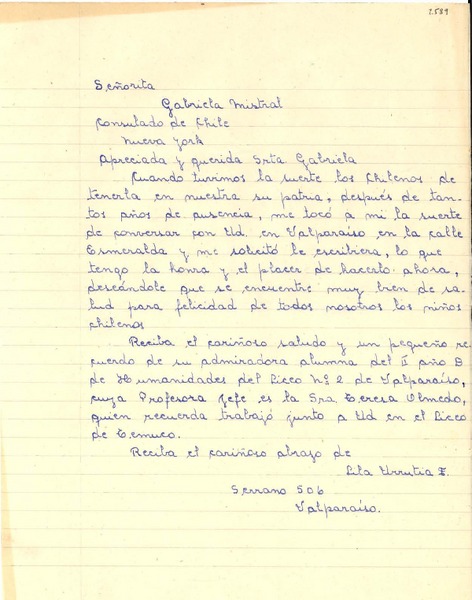 2589
Señorita
Gabriela Mistral
Consulado de Chile
Nueva York
Apreciada y querida Srta Gabriela
Cuando tuvimos la suerte los Chilenos de
tenerla en nuestra su patria, después de tan-
tos años de ausencia, me tocó a mi la suerte
de conversar con Ud. en Valparaíso en la calle
Esmeralda y me solicitó le escribiera, lo que
tengo la honra y el placer de hacerlo ahora,
deseándole que se encuentre muy bien de sa-
lud para felicidad de todos nosotros los niños
chilenos
Reciba el cariñoso saludo y un pequeño re-
cuerdo de su admiradora alumna del II año B
de Humanidades del Liceo Nº 2 de Valparaíso,
cuya Profesora Jefe es la Sra. Teresa Olmedo,
quien recuerda trabajó junto a Ud en el Liceo
de Temuco.
Reciba el cariñoso abrazo de
Lila Urrutia
Serrano 506
Valparaíso.